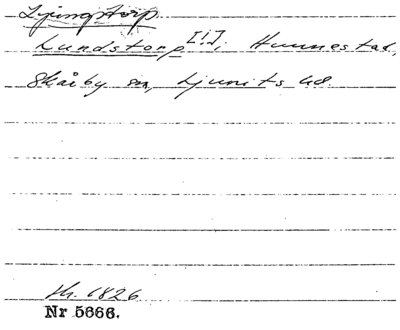 Ljungstorp
Lundstorp [!], Hunnestad,
Skårby sn, Ljunits hd.
th. 1826
Nr 5666.